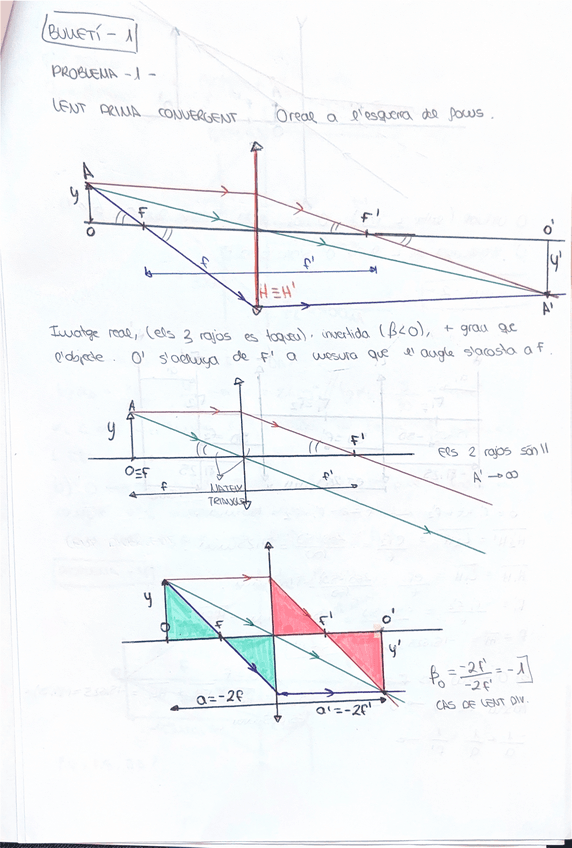 BULLETÍ - 1
PROBLEMA - 1 -
LENT PRIMA CONVERGENT. O real a l'esquerra de focus.
A
y
F
F'
O'
O
y'
f
f'
H≡H'
A'
Imatge real, (els 3 rajos es toquen), invertida (β<0), + gran que
l'objecte. O' s'allunya de F' a mesura que l'angle s'acosta a F.
A
y
F'
O≡F
Els 2 rajos són ||
A' → ∞
f
f'
MATEIX
TRIANGLE
y
O
F
F'
O'
y'
βo = -2f' / -2f' = -1
CAS DE LENT DIV.
a=-2f
a'=-2f'